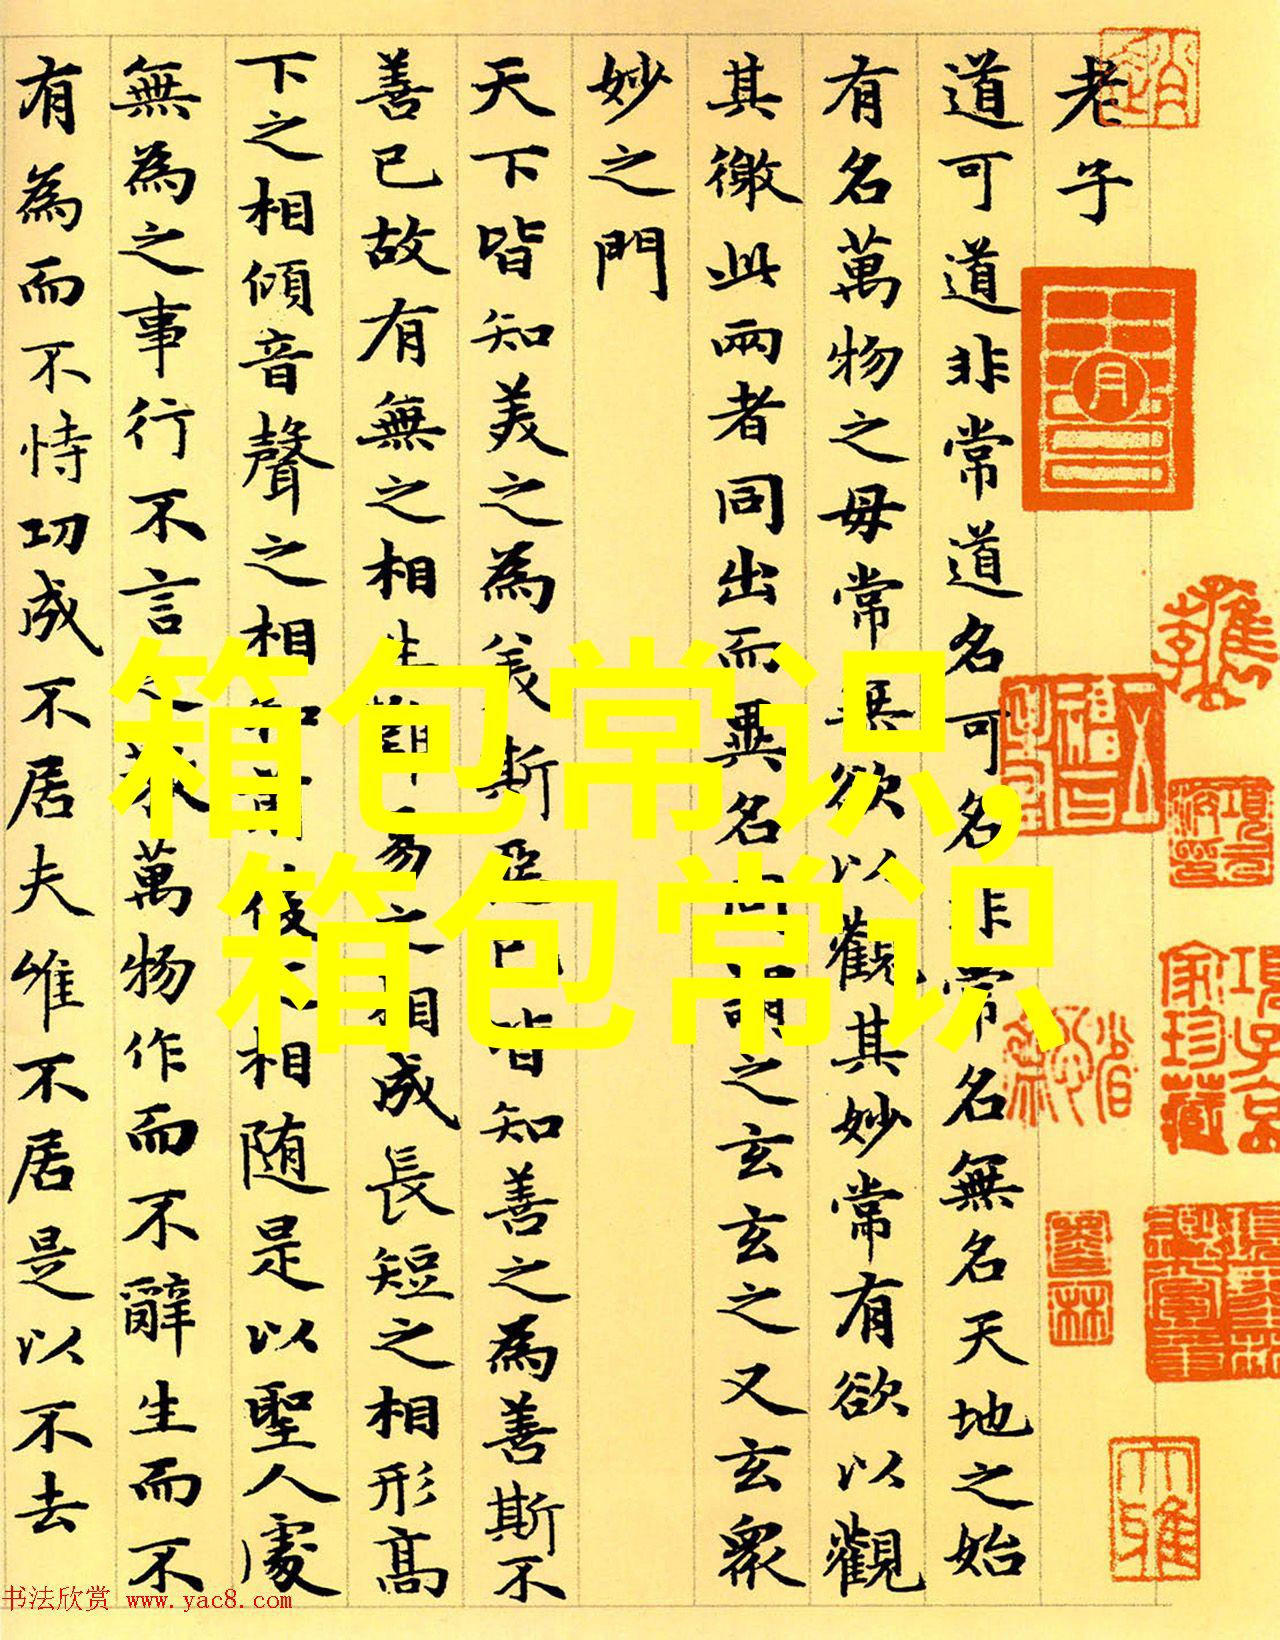 老子
道可道非常道名可名非常名無名天地之始
有名萬物之毋常無欲以觀其妙常有欲以觀
其徼此兩者同出而異名同謂之玄玄之又玄眾
妙之門
天下皆知美之為美斯惡已皆知善之為善斯不
善已故有無之相生難易之相成長短之相形高
下之相傾音聲之相和前後之相随是以聖人處
無為之事行不言之教萬物作而不辭生而不
有為而不恃功成不居夫唯不居是以不去
項子京
家珍藏
箱包常识,
箱包常识
书法欣赏 www.yac8.com